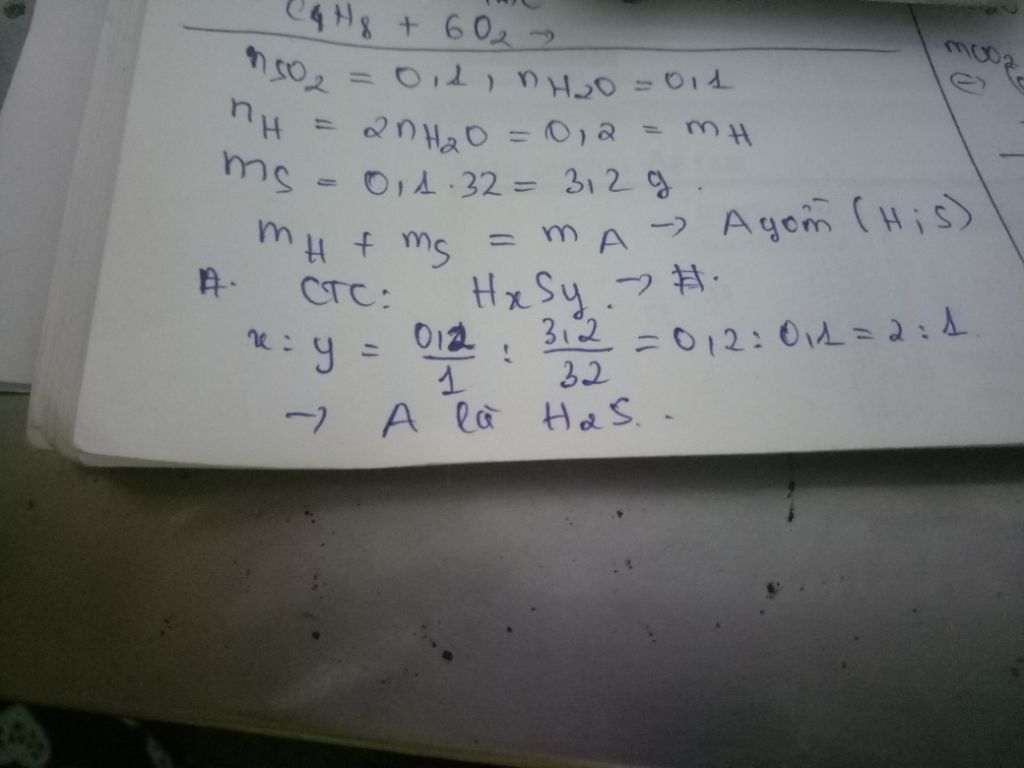 C4H8 + 6O2 →
nSO2 = 0,1, nH2O = 0,1
nH = 2nH2O = 0,2 = mH
mS = 0,1.32 = 3,2 g.
mH + mS = mA → A gồm (H; S)
CTC: HxSy. →
x : y = 0,2/1 : 3,2/32 = 0,2 : 0,1 = 2 : 1
→ A là H2S.
mCO2